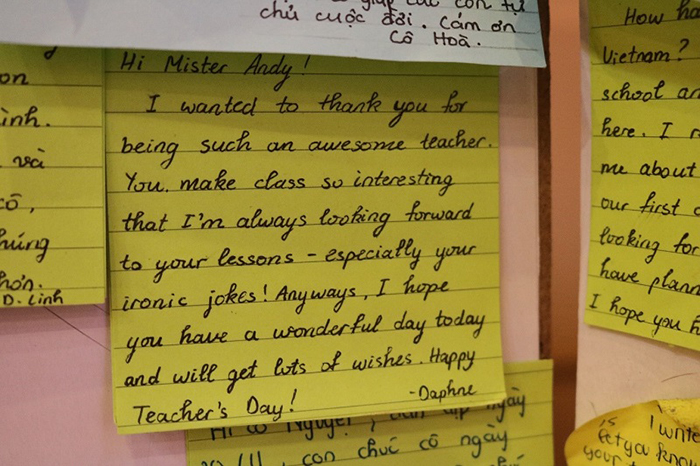 con tự
chủ cuộc đời. Cám ơn
Cô Hoà.
Hi Mister Andy!
I wanted to thank you for
being such an awesome teacher.
You make class so interesting
that I'm always looking forward
to your lessons - especially your
ironic jokes! Anyways, I hope
you have a wonderful day today
and will get lots of wishes. Happy
Teacher's Day!
-Daphne
và
D. Linh
Vietnam?
school
here. I
me about
our first
looking for
have
I hope you
ngày
con chúc cô ngày
is